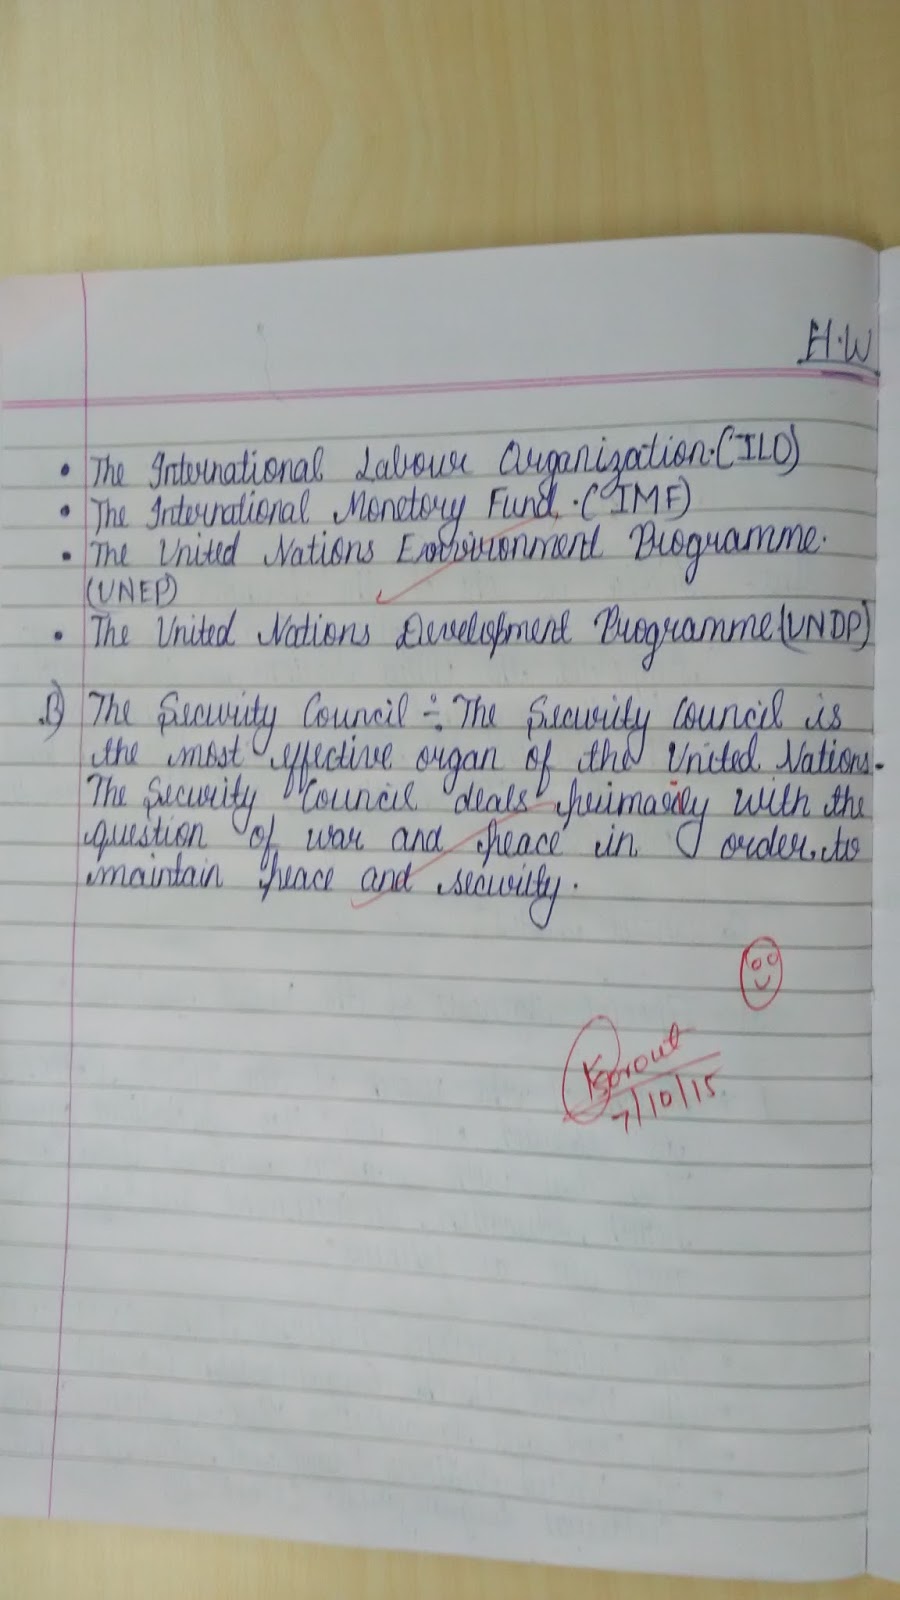 H.W
• The International Labour Organization.(ILO)
• The International Monetory Fund.(IMF)
• The United Nations Environment Programme.
(UNEP)
• The United Nations Development Programme(UNDP)
B) The Security Council :- The Security Council is
the most effective organ of the United Nations.
The Security Council deals primarily with the
question of war and peace in order to
maintain peace and security.
7/10/15